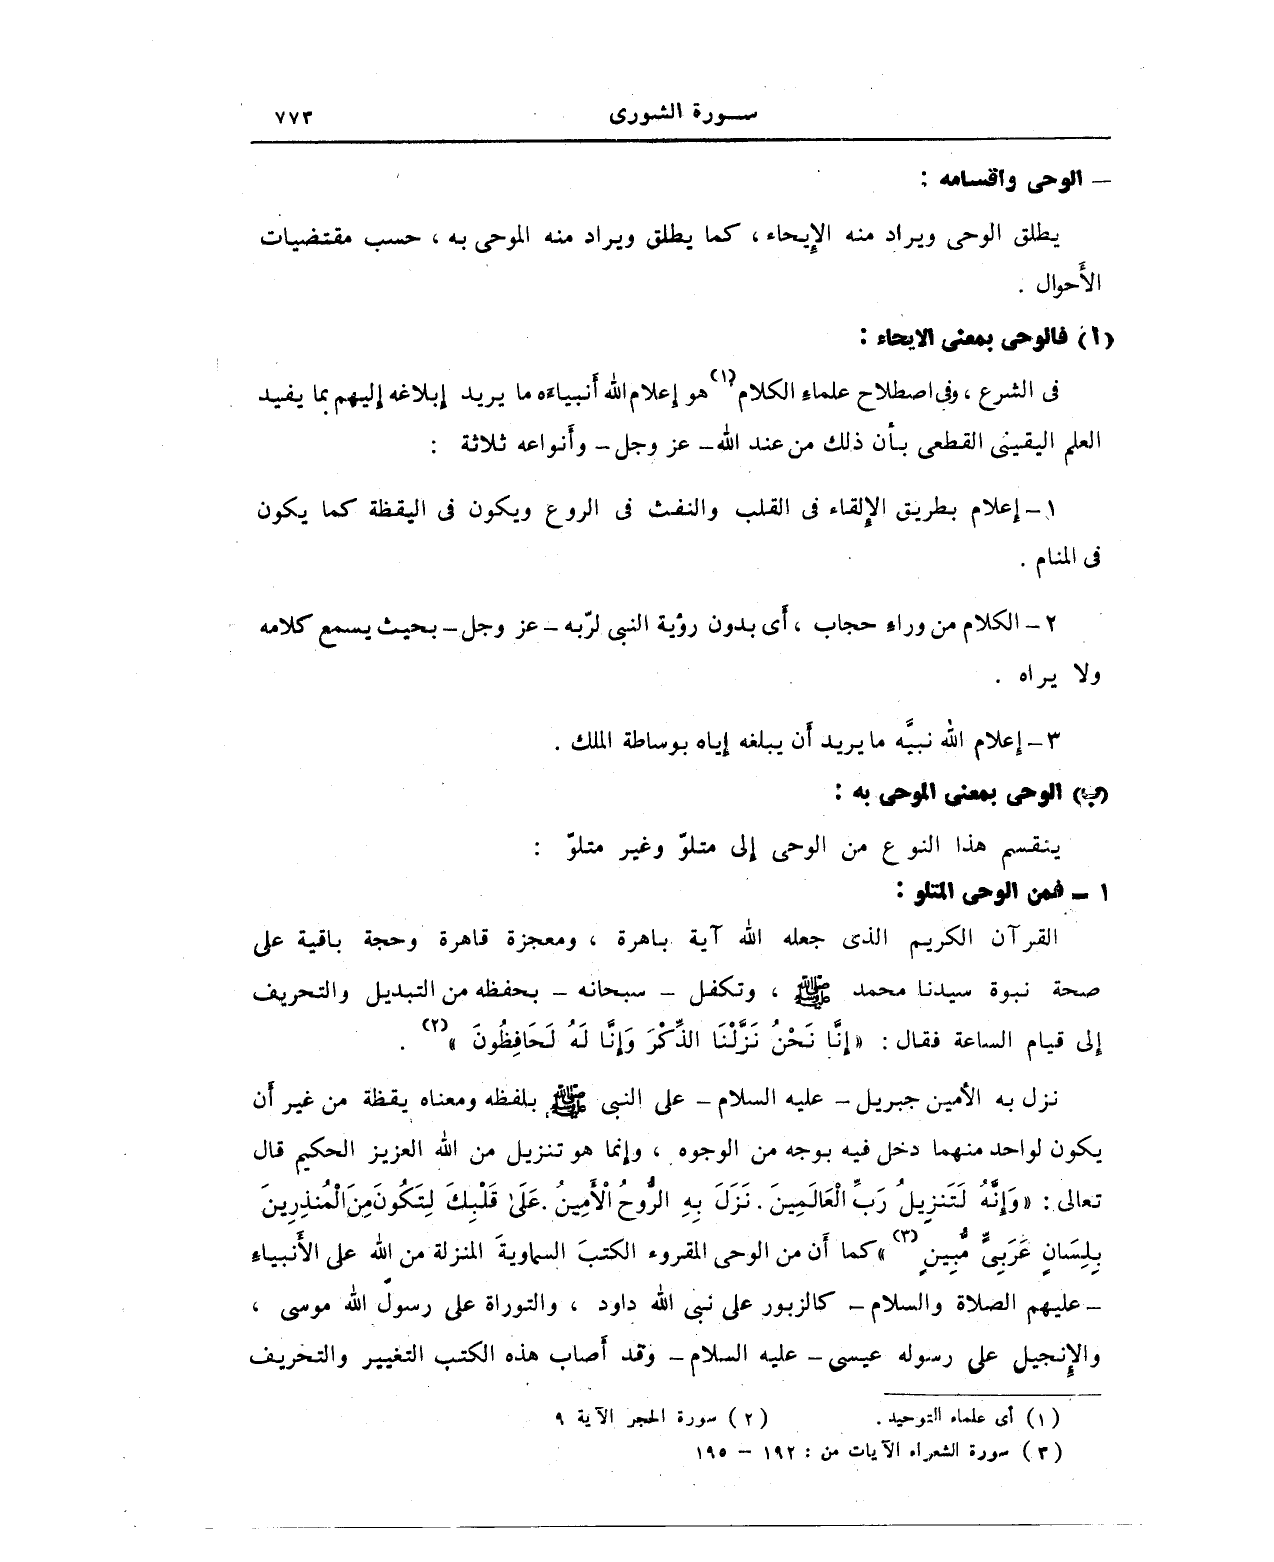 سورة الشورى ٧٧٣
— الوحى وأقسامه :
يطلق الوحى ويراد منه الإيحاء ، كما يطلق ويراد منه الموحى به ، حسب مقتضيات
الأَحوال .
(أ) فالوحى بمعنى الايحاء :
فى الشرع ، وفى اصطلاح علماءِ الكلام (١) هو إعلام الله أنبياءَه ما يريد إبلاغه إليهم بما يفيد
العلم اليقينى القطعى بأن ذلك من عند الله – عز وجل – وأَنواعه ثلاثة :
١ – إعلام بطريق الإلقاء فى القلب والنفث فى الروع ويكون فى اليقظة كما يكون
فى المنام .
٢ – الكلام من وراءِ حجاب ، أَى بدون رؤية النبى لربّه – عز وجل – بحيث يسمع كلامه
ولا يراه .
٣ – إعلام الله نبيَّه ما يريد أَن يبلغه إياه بوساطة الملك .
(ب) الوحى بمعنى الموحى به :
ينقسم هذا النوع من الوحى إلى متلوّ وغير متلوّ :
١ – فمن الوحى المتلو :
القرآن الكريم الذى جعله الله آية باهرة ، ومعجزة قاهرة وحجة باقية على
صحة نبوة سيدنا محمد ﷺ ، وتكفل – سبحانه – بحفظه من التبديل والتحريف
إلى قيام الساعة فقال : « إِنَّا نَحْنُ نَزَّلْنَا الذِّكْرَ وَإِنَّا لَهُ لَحَافِظُونَ » (٢) .
نزل به الأمين جبريل – عليه السلام – على النبى ﷺ بلفظه ومعناه يقظة من غير أَن
يكون لواحد منهما دخل فيه بوجه من الوجوه ، وإنما هو تنزيل من الله العزيز الحكيم قال
تعالى : « وَإِنَّهُ لَتَنزِيلُ رَبِّ الْعَالَمِينَ . نَزَلَ بِهِ الرُّوحُ الْأَمِينُ . عَلَىٰ قَلْبِكَ لِتَكُونَ مِنَ الْمُنذِرِينَ
بِلِسَانٍ عَرَبِىٍّ مُّبِينٍ (٣) » كما أن من الوحى المقروء الكتبَ السماويةَ المنزلة من الله على الأَنبياء
– عليهم الصلاة والسلام – كالزبور على نبى الله داود ، والتوراة على رسول الله موسى ،
والإِنجيل على رسوله عيسى – عليه السلام – وقد أصاب هذه الكتب التغيير والتحريف
(١) أى علماء التوحيد . (٢) سورة الحجر الآية ٩
(٣) سورة الشعراء الآيات من : ١٩٢ – ١٩٥